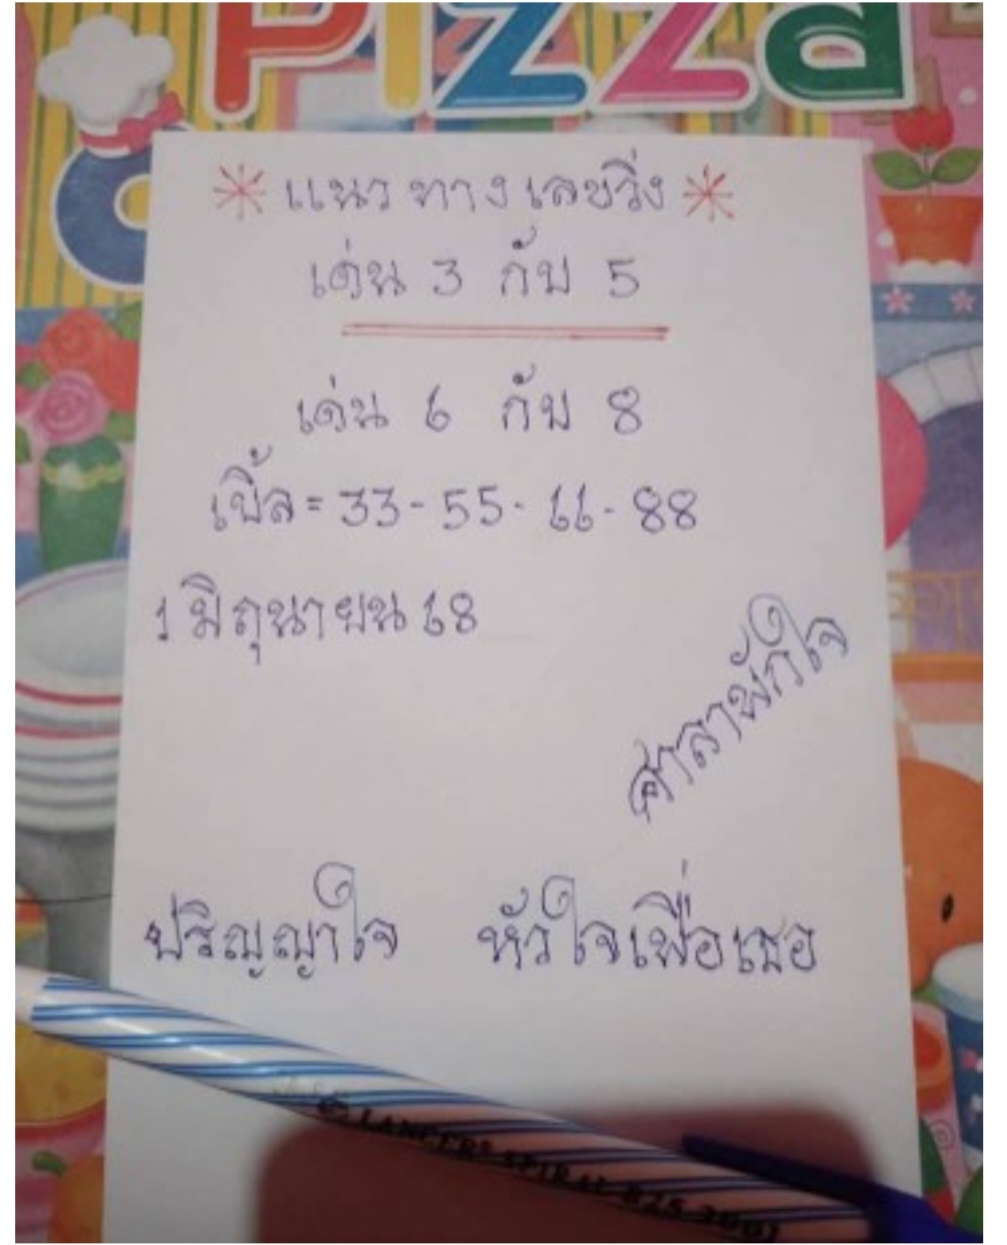 Pizza
* แนวทางเลขวิ่ง *
เด่น 3 กับ 5
เด่น 6 กับ 8
เบิ้ล = 33-55-66-88
1 มิถุนายน 68
ศาลาพักใจ
ปริญญาใจ หัวใจเพื่อเธอ
LANCER SPIRAL 825